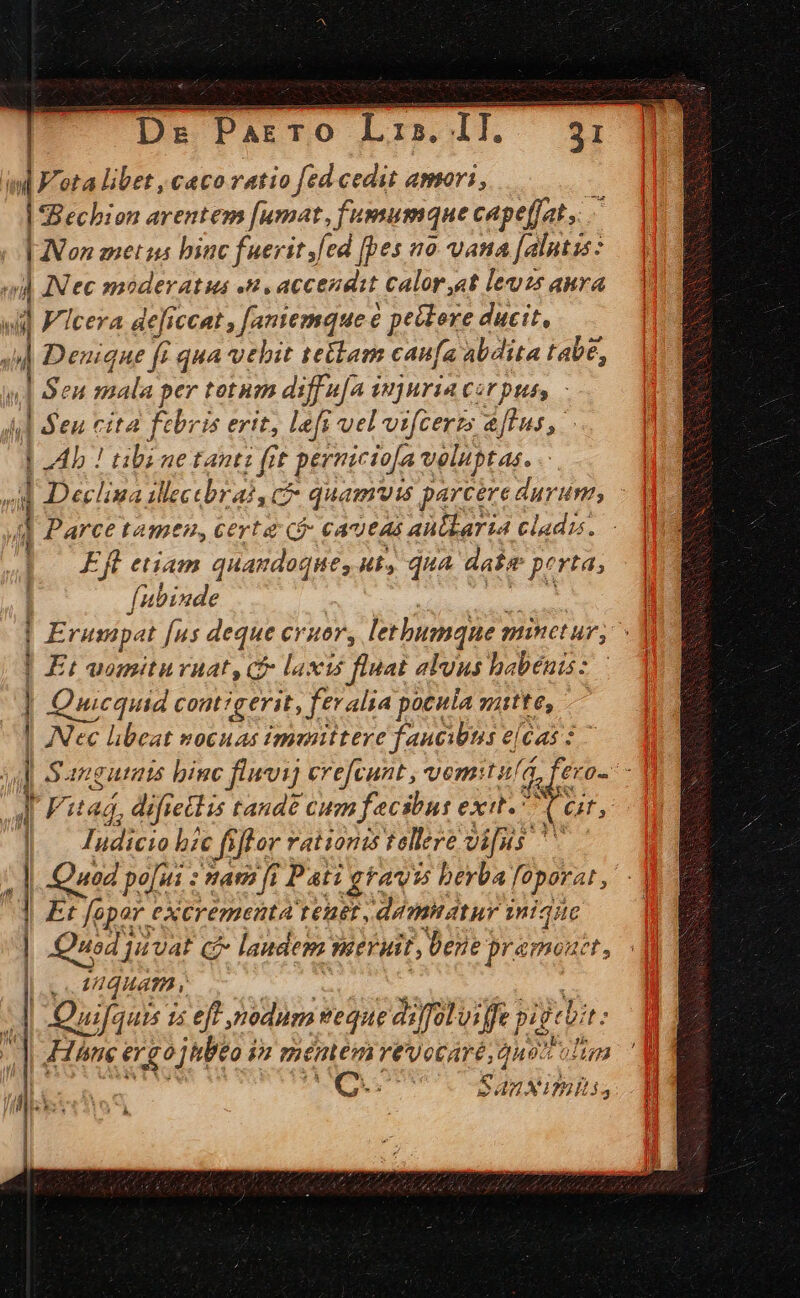 De Pæto Lib. II. 31
Vota libet, cæco ratio sed cedit amori,
Bechion arentem sumat, fumumque capessat,
Non metus hinc fuerit, sed spes nō vana salutis:
Nec moderatus accendit calor, at levis aura
Vlcera desiccat, saniemque è pectore ducit,
Denique si qua vehit tectam causa abdita tabē,
Seu mala per totum diffusa injuria corpus,
Seu cita febris erit, læsi vel visceris æstus,
Ah! tibi ne tanti sit perniciosa voluptas.
Declina illecebras, & quamvis parcere durum,
Parce tamen, certæ & caveas auctaria cladis.
Est etiam quandoque, ut, qua data porta,
subinde
Erumpat sus deque cruor, lethumque minetur,
Et vomitu ruat, & laxis fluat alvus habenis:
Quicquid contigerit, feralia pocula mitte,
Nec libeat nocuas immittere faucibus escas:
Sanguinis hinc fluvij crescunt, vomitusq́, feros
Vitaq́, difiectis tandē cum fæcibus exit.
Iudicio hîc sistor rationis tollere visus
Quod posui: nam si Pati gravis herba soporat,
Et sopor excrementa tenet, damnatur inique
Quod juvat & laudem meruit, bene præmonet,
inquam,
Quisquis is est, nodum neque dissolvisse pigebit:
Hunc ergo jubeo in mentem revocare, quod olim
C Sanximus,